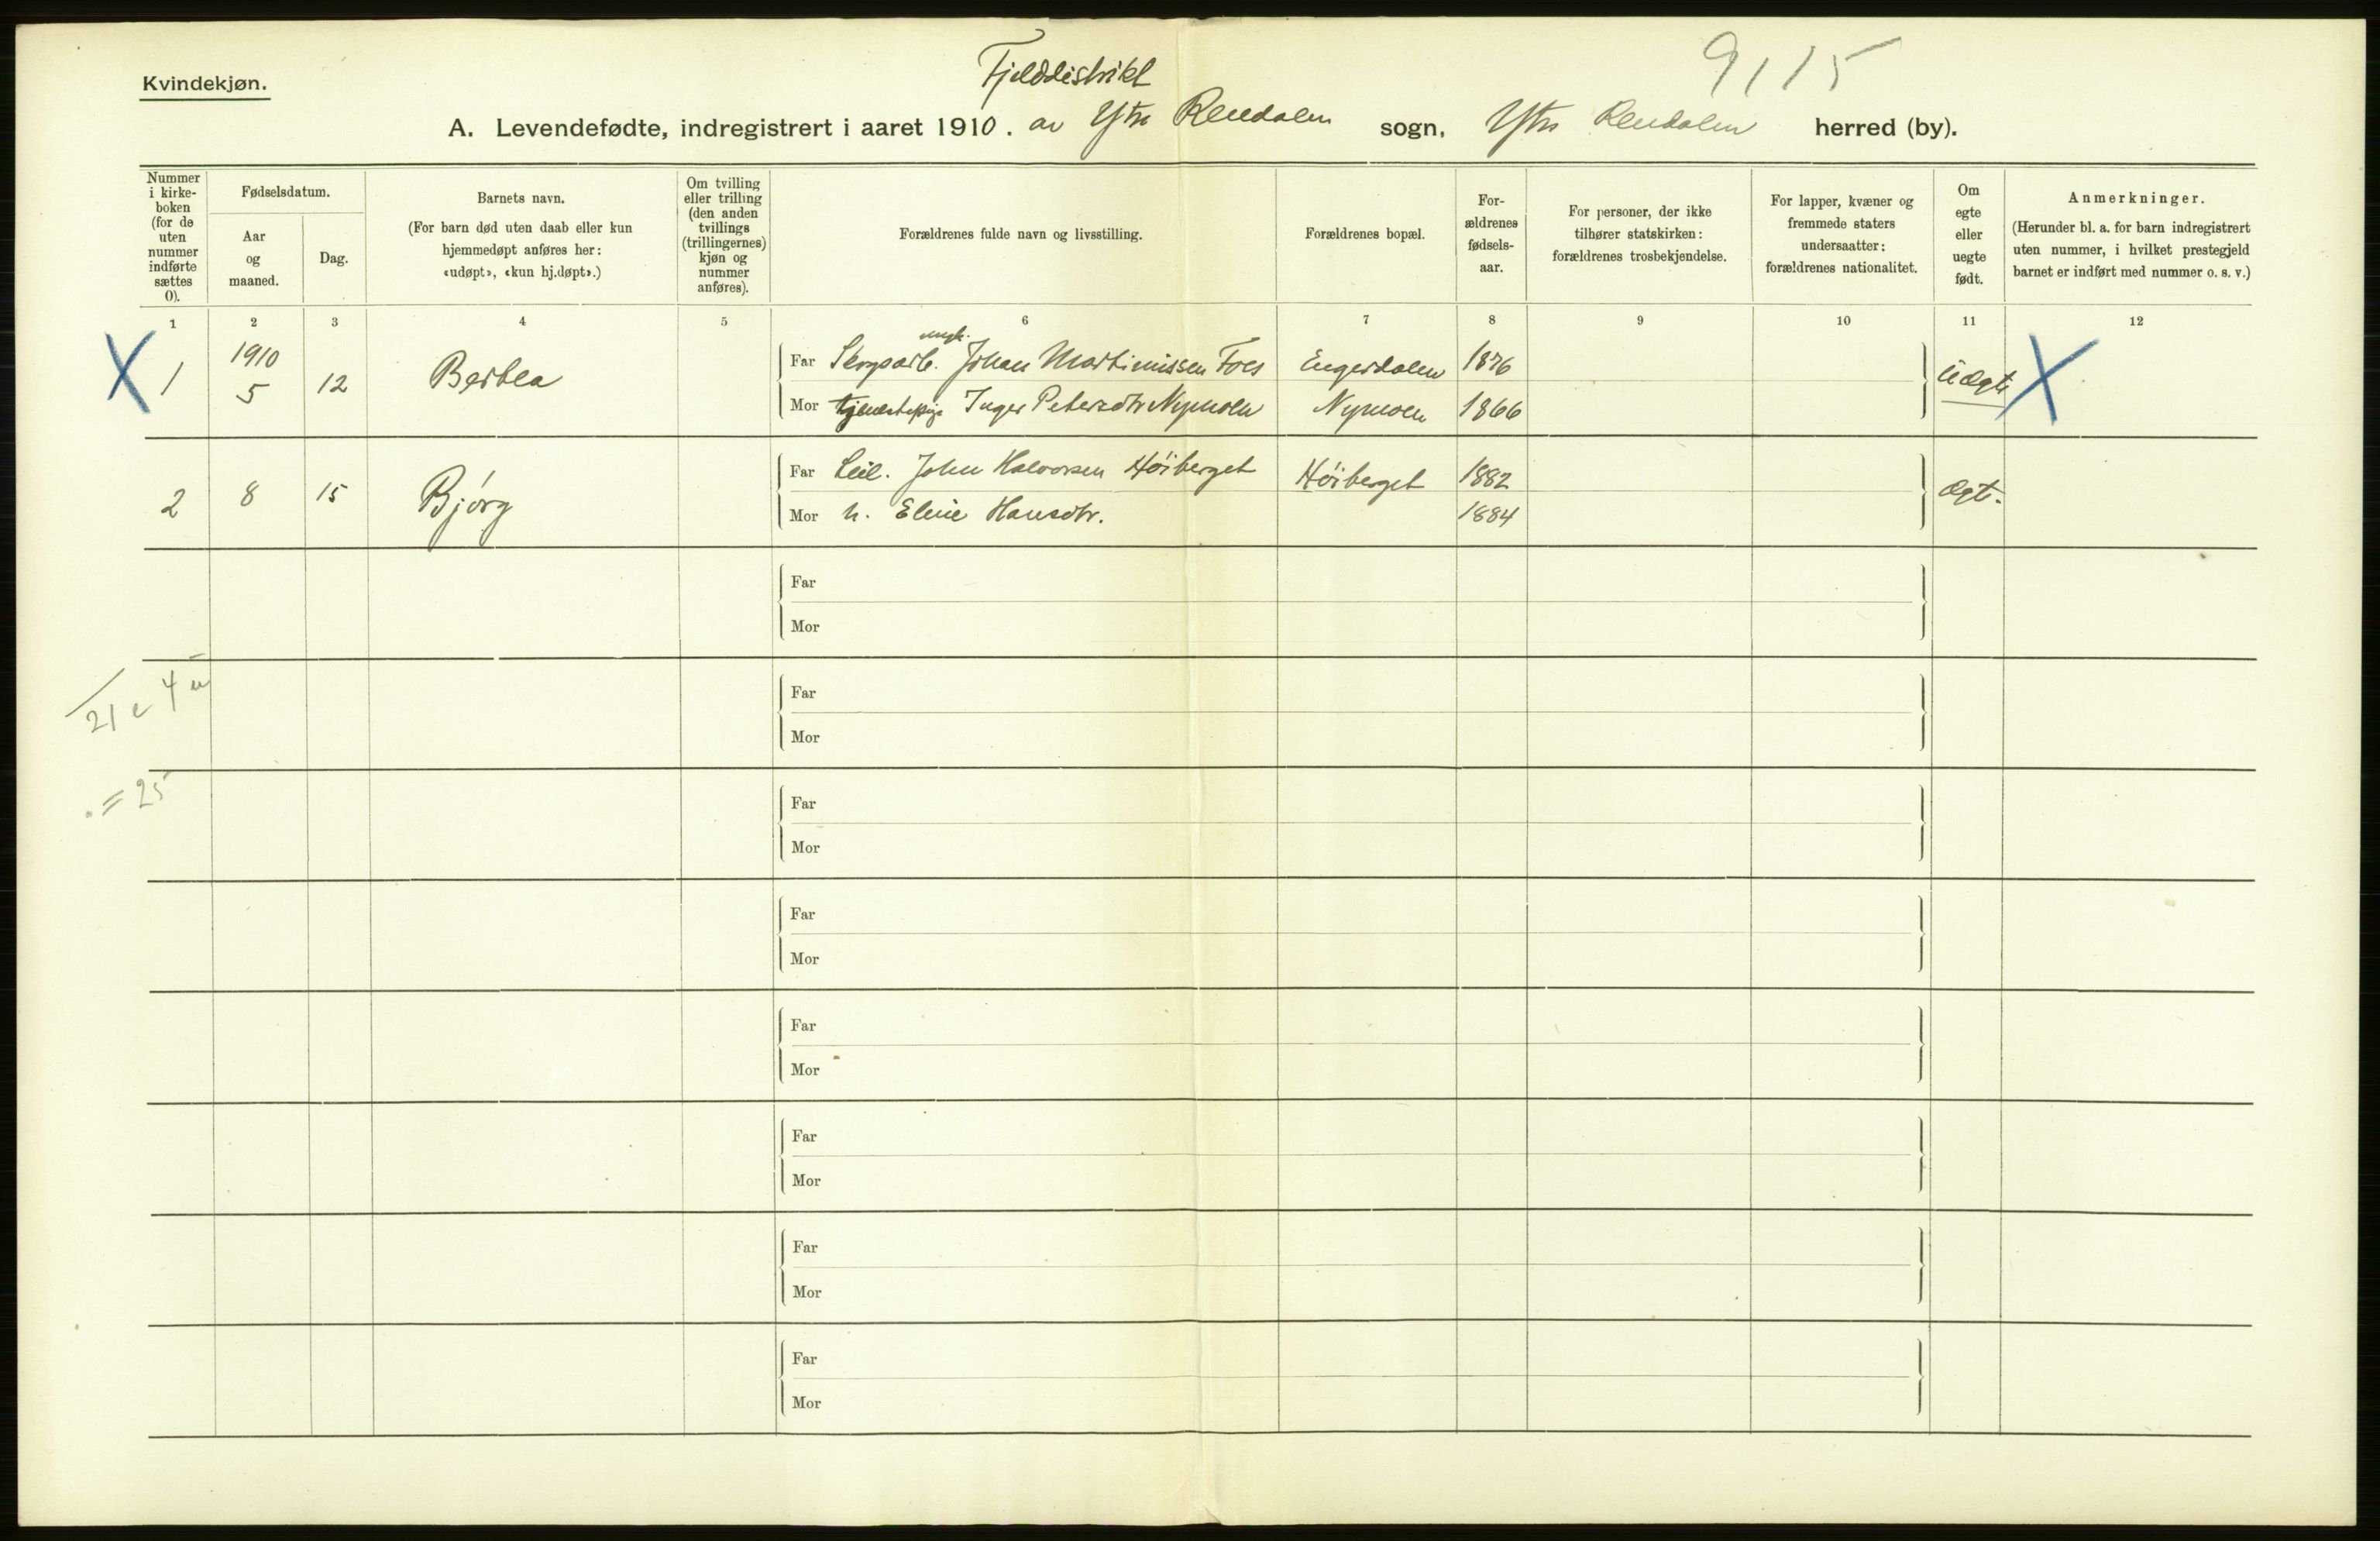 Kvindekjøn.
Fjelddistrikt
9115
A. Levendefødte, indregistrert i aaret 1910. av Ytre Rendalen sogn, Ytre Rendalen herred (by).
Nummer i kirke-boken (for de uten nummer indførte sættes 0).
Fødselsdatum.
Aar og maaned.
Dag.
Barnets navn.
(For barn død uten daab eller kun hjemmedøpt anføres her: «udøpt», «kun hj.døpt».)
Om tvilling eller trilling (den anden tvillings (trillingernes) kjøn og nummer anføres).
Forældrenes fulde navn og livsstilling.
Forældrenes bopæl.
For-ældrenes fødsels-aar.
For personer, der ikke tilhører statskirken: forældrenes trosbekjendelse.
For lapper, kvæner og fremmede staters undersaatter: forældrenes nationalitet.
Om egte eller uegte født.
Anmerkninger.
(Herunder bl. a. for barn indregistrert uten nummer, i hvilket prestegjeld barnet er indført med nummer o. s. v.)
1 2 3 4 5 6 7 8 9 10 11 12
X 1 1910 5 12 Berbla
ungk.
Far Skogsarb. Johan Martinissen Foes Engerdalen 1876
Mor tjenestepige Inger Petersdtr Nymoen Nymoen 1866
Uægte X
2 8 15 Bjørg
Far Leil. John Halvorsen Høiberget Høiberget 1882
Mor h. Eline Hansdtr. 1884
ægte.
Far
Mor
21 e 4 u
Far
Mor
= 25
Far
Mor
Far
Mor
Far
Mor
Far
Mor
Far
Mor
Far
Mor